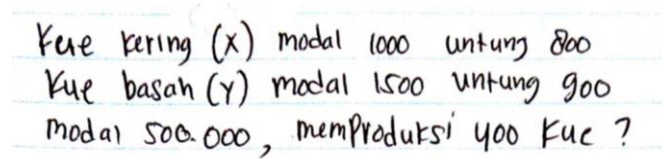 Kue kering (x) modal 1000 untung 800
Kue basah (Y) modal 1500 untung 900
modal 500.000, memproduksi 400 kue ?